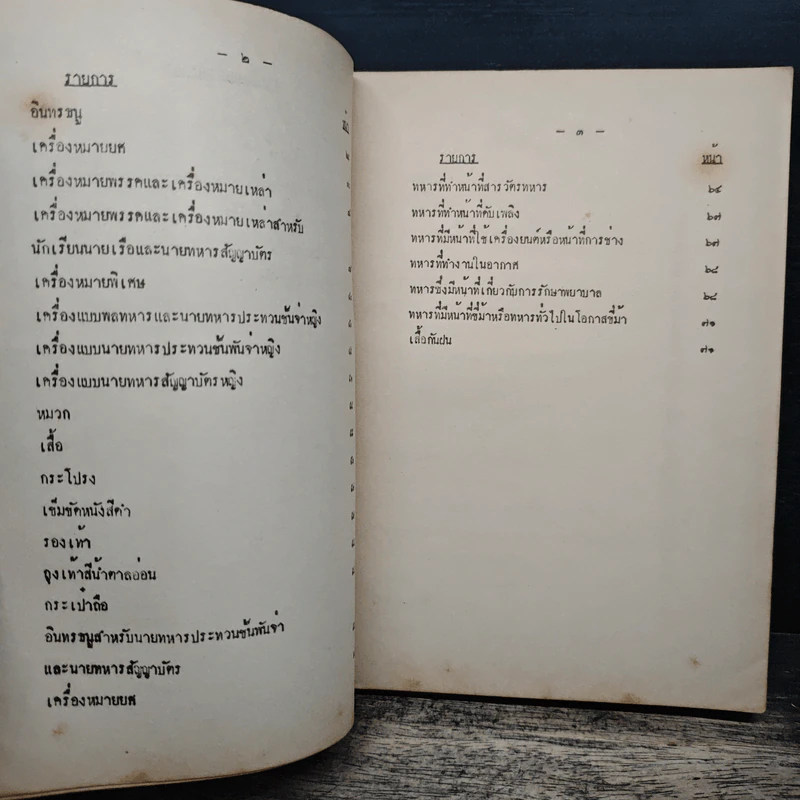 – ๒ –
รายการ
อินทรธนู
เครื่องหมายยศ
เครื่องหมายพรรคและเครื่องหมายเหล่า
เครื่องหมายพรรคและเครื่องหมายเหล่าสำหรับ
นักเรียนนายเรือและนายทหารสัญญาบัตร
เครื่องหมายพิเศษ
เครื่องแบบพลทหารและนายทหารประทวนชั้นจ่าหญิง
เครื่องแบบนายทหารประทวนชั้นพันจ่าหญิง
เครื่องแบบนายทหารสัญญาบัตรหญิง
หมวก
เสื้อ
กระโปรง
เข็มขัดหนังสีดำ
รองเท้า
ถุงเท้าสีน้ำตาลอ่อน
กระเป๋าถือ
อินทรธนูสำหรับนายทหารประทวนชั้นพันจ่า
และนายทหารสัญญาบัตร
เครื่องหมายยศ
– ๓ –
รายการ หน้า
ทหารที่ทำหน้าที่สารวัตรทหาร ๖๔
ทหารที่ทำหน้าที่ดับเพลิง ๖๗
ทหารที่มีหน้าที่ใช้เครื่องยนต์หรือหน้าที่การช่าง ๖๗
ทหารที่ทำงานในอากาศ ๖๘
ทหารซึ่งมีหน้าที่เกี่ยวกับการรักษาพยาบาล ๖๘
ทหารที่มีหน้าที่ขี่ม้าหรือทหารทั่วไปในโอกาสขี่ม้า ๗๑
เสื้อกันฝน ๗๑